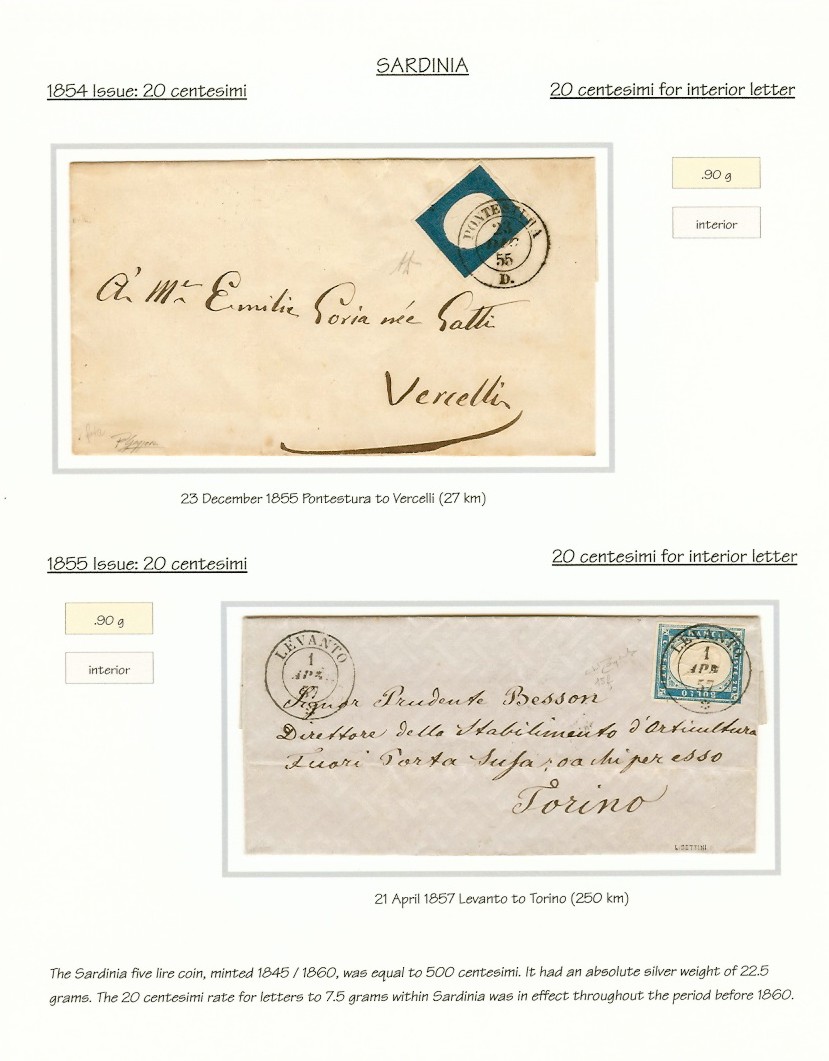 SARDINIA
1854 Issue: 20 centesimi
20 centesimi for interior letter
.90 g
interior
PONTESTURA
23
DEC
55
D.
A' Me Emilie Goria née Gatti
Vercelli
23 December 1855 Pontestura to Vercelli (27 km)
1855 Issue: 20 centesimi
20 centesimi for interior letter
.90 g
interior
LEVANTO
1
APR
57
LEVANTO
1
APR
57
BOLLO
Signor Prudente Besson
Direttore dello Stabilimento d'Orticultura
Fuori Porta Susa
Torino
21 April 1857 Levanto to Torino (250 km)
The Sardinia five lire coin, minted 1845 / 1860, was equal to 500 centesimi. It had an absolute silver weight of 22.5
grams. The 20 centesimi rate for letters to 7.5 grams within Sardinia was in effect throughout the period before 1860.